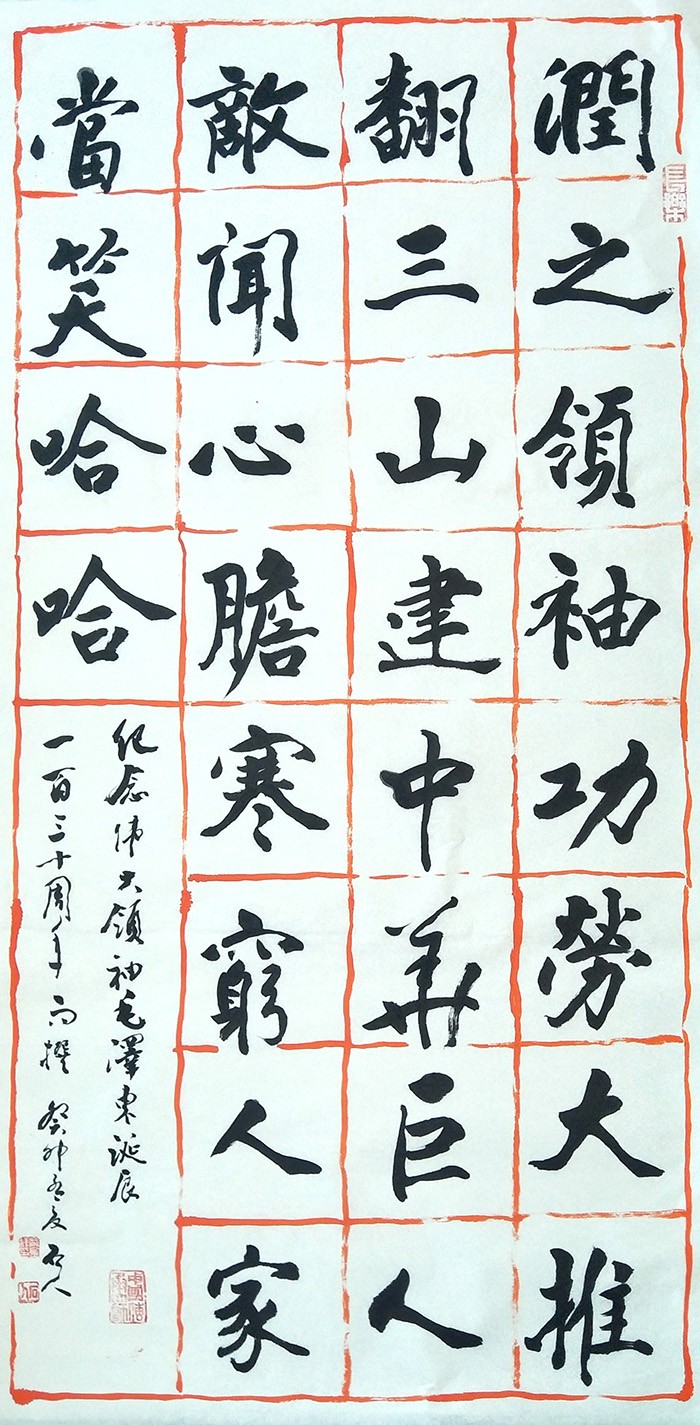 潤之領袖功勞大推
翻三山建中華巨人
敵聞心膽寒窮人家
當笑哈哈
纪念伟大領袖毛澤东诞辰
一百三十周年而撰 癸卯孟夏石人